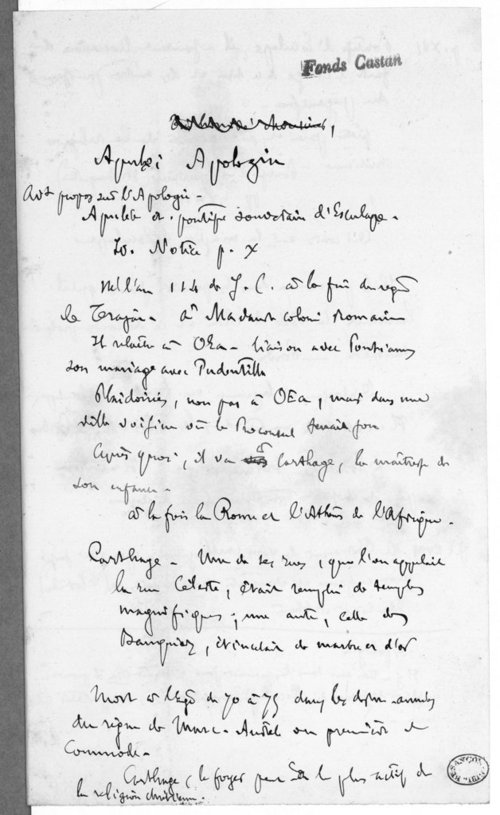 Fonds Castan
Apulei Apologia
Avt propos sur l'Apologie -
Apulée et pontife souverain d'Esculape -
Notice p. X
Né l'an 114 de J. C. à la fin du règne
de Trajan - à Madaure colonie romaine
Il relâche à OEa - liaison avec Pontianus
son mariage avec Pudentilla
Plaidoiries, non pas à OEa, mais dans une
ville voisine où le Proconsul tenait
Après quoi, il va à Carthage, la maîtresse de
son enfance -
à la fois la Rome et l'Athènes de l'Afrique -
Carthage - Une de ses rues, que l'on appelait
la rue Céleste, était remplie de temples
magnifiques ; une autre, celle des
Banquiers, étincelait de marbre et d'or
Mort à l'âge de 70 à 75 dans les dern. années
du règne de Marc-Aurèle ou premières de
Commode -
Carthage, le foyer le plus actif de
la religion chrétienne.